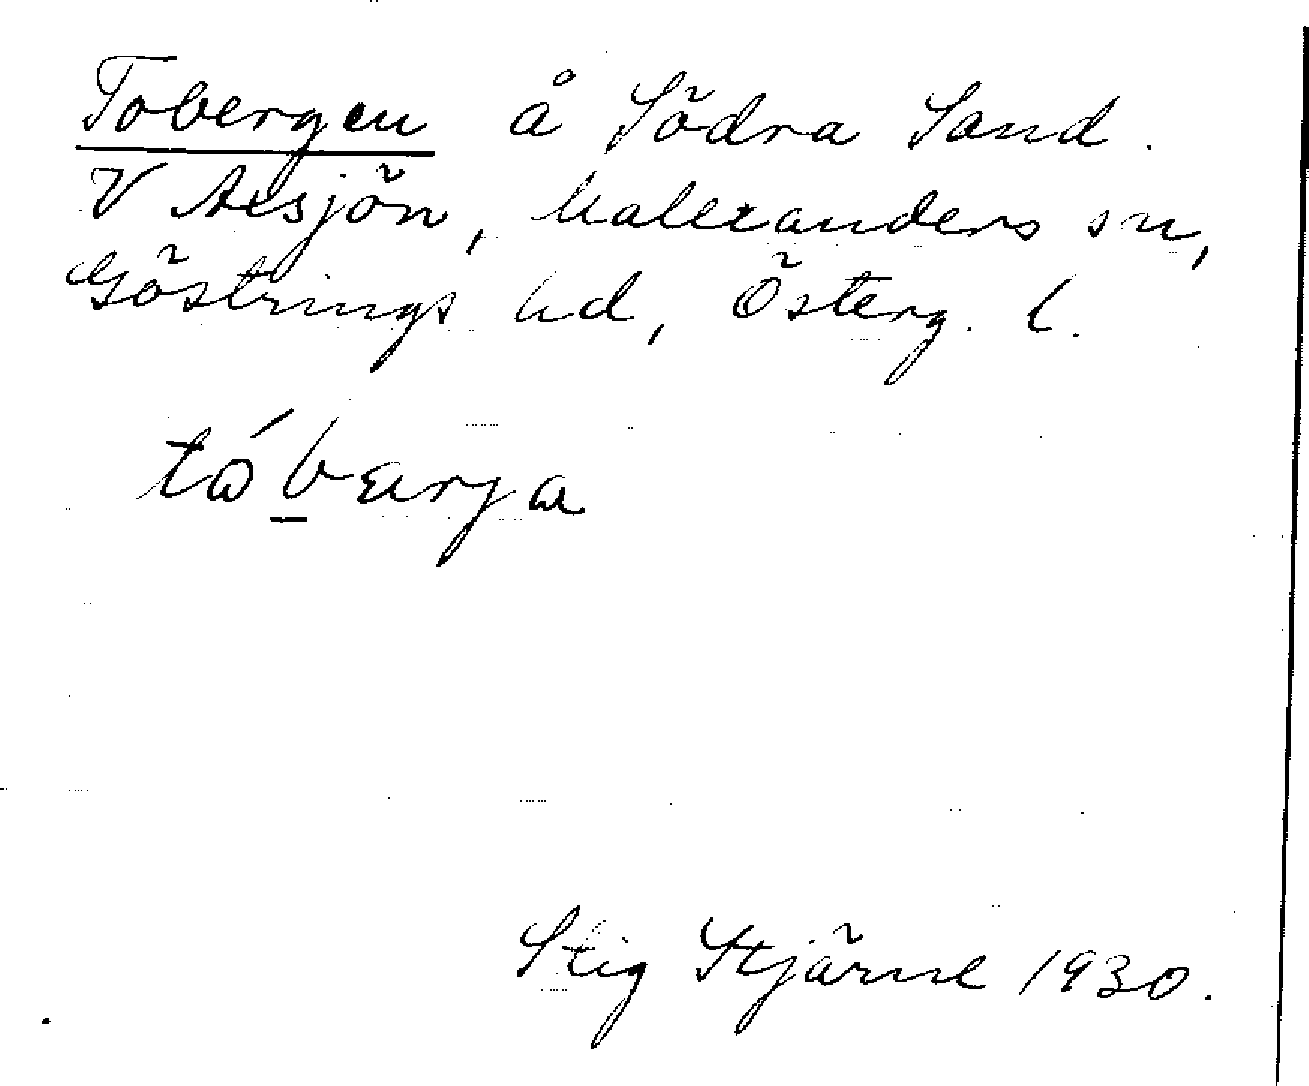 Tobergen å Södra Sand.
V Åsjön, Malexanders sn,
Göstrings hd, Österg. l.
tóbærja
Stig Stjärne 1930.